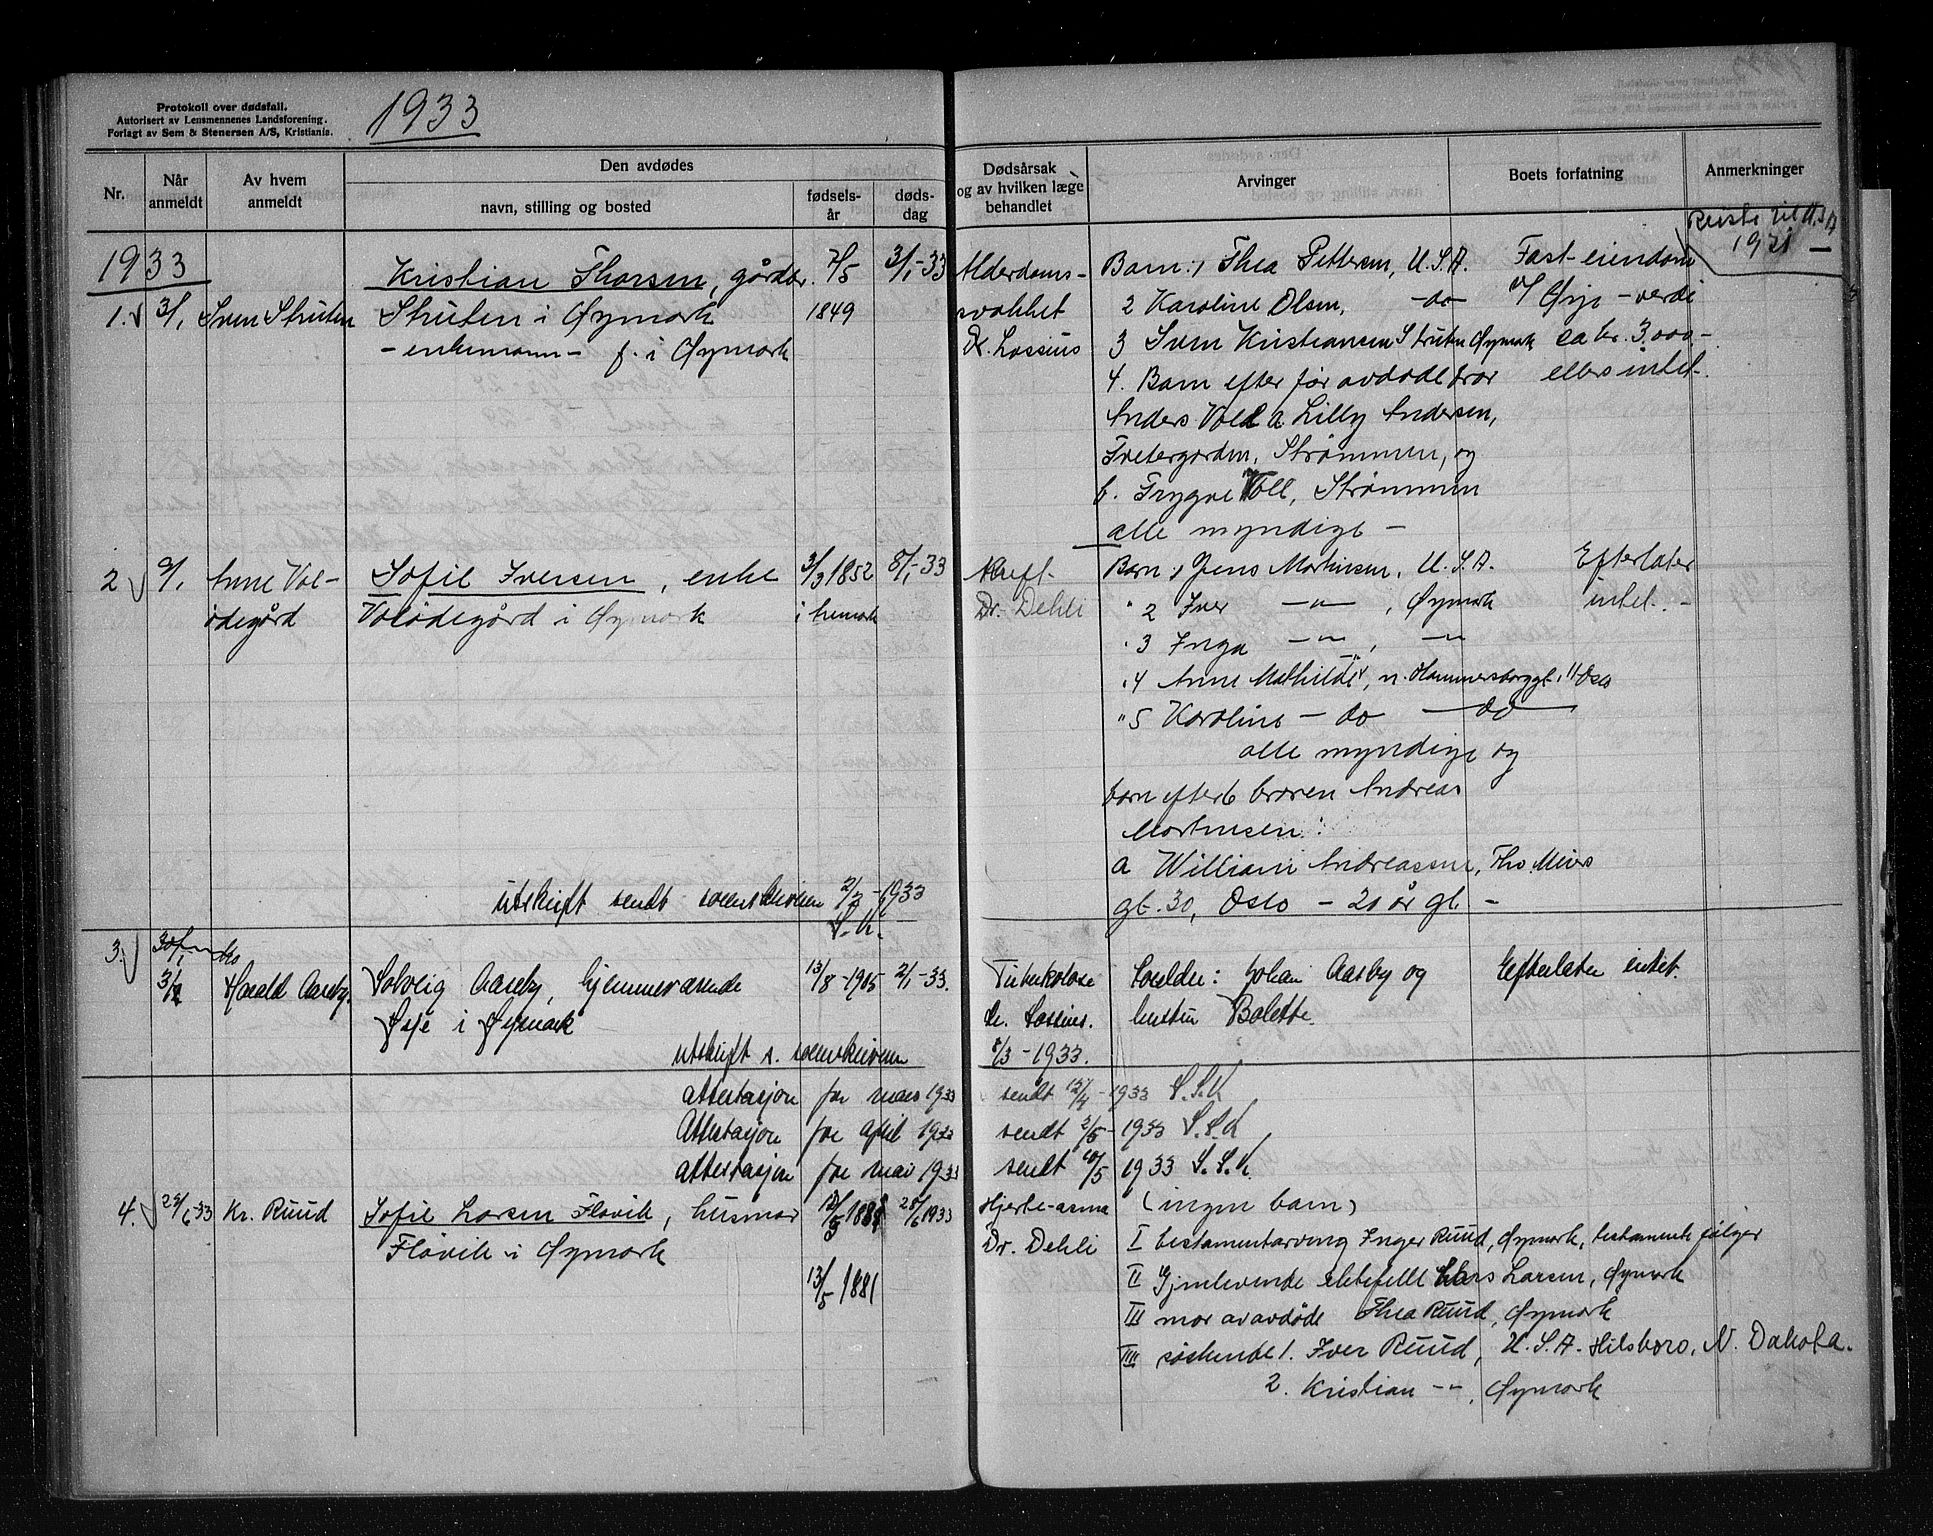 Protokoll over dødsfall.
Autorisert av Lensmennenes Landsforening.
Forlagt av Sem & Stenersen A/S, Kristiania.
1933
Nr.
Når anmeldt
Av hvem anmeldt
Den avdødes
navn, stilling og bosted
fødsels-år
døds-dag
Dødsårsak og av hvilken læge behandlet
Arvinger
Boets forfatning
Anmerkninger
Reiste til U.S.A
1921 —
1933
Kristian Thorsen, gårdbr. 7/5 3/1-33 Alderdoms- Barn: 1 Thea Pettersen, U.S.A. Fast-eiendom
1. 3/1 Sven Struten Struten i Øymark 1849 svakhet 2 Karoline Olsen, -do- i Ørje - verdi
- enkemann - f. i Øymark Dr. Lossius 3 Sven Kristiansen Struten Øymark ca kr. 3.000-
4. Barn efter før avdøde bror ellers intet.
Anders Vold a Lilly Andersen,
Tvetergården, Strømmen, og
b. Trygve Voll, Strømmen
alle myndige -
2 9/1 Anne Vol- Sofie Iversen, enke 3/3 1852 8/1-33 Barn: 1 Jens Martinsen, U.S.A. Efterlater
ødegård Volødegård i Øymark i Aremark Dr. Dehli " 2 Iver -"- , Øymark intet. -
" 3 Inga -"- , -"-
" 4 Anne Mathilde ", n. Hammersborggt. 11 Oslo
" 5 Karoline - do - do -
alle myndige og
barn efter broren Andreas
Martinsen:
a William Andreassen, Ths. Meiers
utskrift sendt sorenskriveren 2/2-1933
gt. 30, Oslo - 20 år gl. -
3. 30/1
3/2 Harald Aasby. Solveig Aaseby, hjemmeværende 13/8-1905 2/1-33. Tuberkulose Foreldre: Johan Aasby og Efterlater intet.
Ørje i Øymark Dr. Lossius. hustru Bolette.
utskrift s. sorenskriveren 8/3-1933.
attestasjon for mars 1933 sendt 12/4-1933 S.S.K
Attestasjon for april 1933 sendt 2/5-1933 S.S.K
attestasjon for mai 1933 sendt 10/5 1933 S.S.K.
4. 29/6-33 Kr. Ruud Sofie Larsen Fløvik, husmor 13/5 1881 28/6 1933 Hjerte-asma (ingen barn)
Fløvik i Øymark Dr. Dehli I testamentarving Inger Ruud, Øymark, testamente følger
13/5 1881 II Gjenlevende ektefelle Lars Larsen, Øymark
III mor av avdøde Thea Ruud, Øymark
IIII søskende 1. Iver Ruud, U.S.A. Hilsboro, N. Dakota.
2. Kristian -"-, Øymark